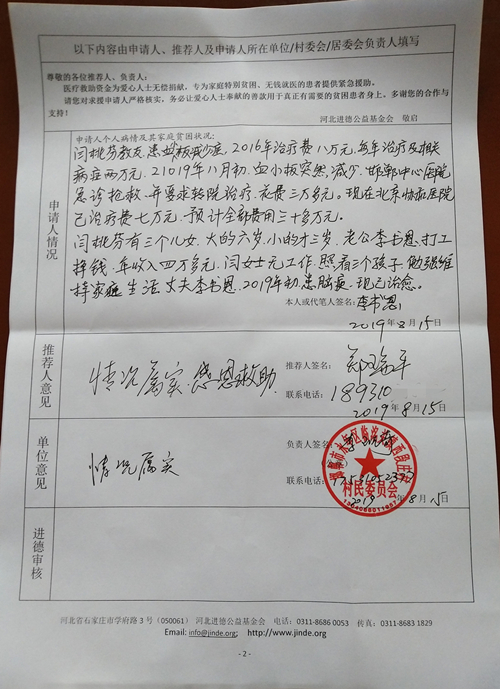 以下内容由申请人、推荐人及申请人所在单位/村委会/居委会负责人填写
尊敬的各位推荐人、负责人：
医疗救助资金为爱心人士无偿捐献，专为家庭特别贫困、无钱就医的患者提供紧急援助。
请您对求援申请人严格核实，务必让爱心人士奉献的善款用于真正有需要的贫困患者身上。多谢您的合作与
支持！
河北进德公益基金会 敬启
申请人情况
申请人个人病情及其家庭贫困状况：
闫桃芬教友患血小板减少症，2016年治疗费八万元，每年治疗及相关
病症两万元，21019年八月初血小板突然减少，邯郸中心医院
急诊抢救，并要求转院治疗，花费三万多元。现在北京协和医院
已治疗费七万元，预计全部费用三十多万元。
闫桃芬有三个儿女，大的六岁，小的才三岁，老公李书恩，打工
挣钱，年收入四万多元，闫女士无工作，照看三个孩子，勉强维
持家庭生活，丈夫李书恩，2019年初患脑梗，现已治愈。
本人或代笔人签名：李书恩
2019年8月15日
推荐人意见
情况属实，感恩救助
推荐人签名：
联系电话：189310
2019年8月15日
单位意见
情况属实
负责人签名：
联系电话：
村民委员会
2019年8月15日
进德审核
河北省石家庄市学府路 3 号（050061） 河北进德公益基金会 电话：0311-8686 0053 传真：0311-8683 1829
Email: info@jinde.org; http://www.jinde.org
- 2 -